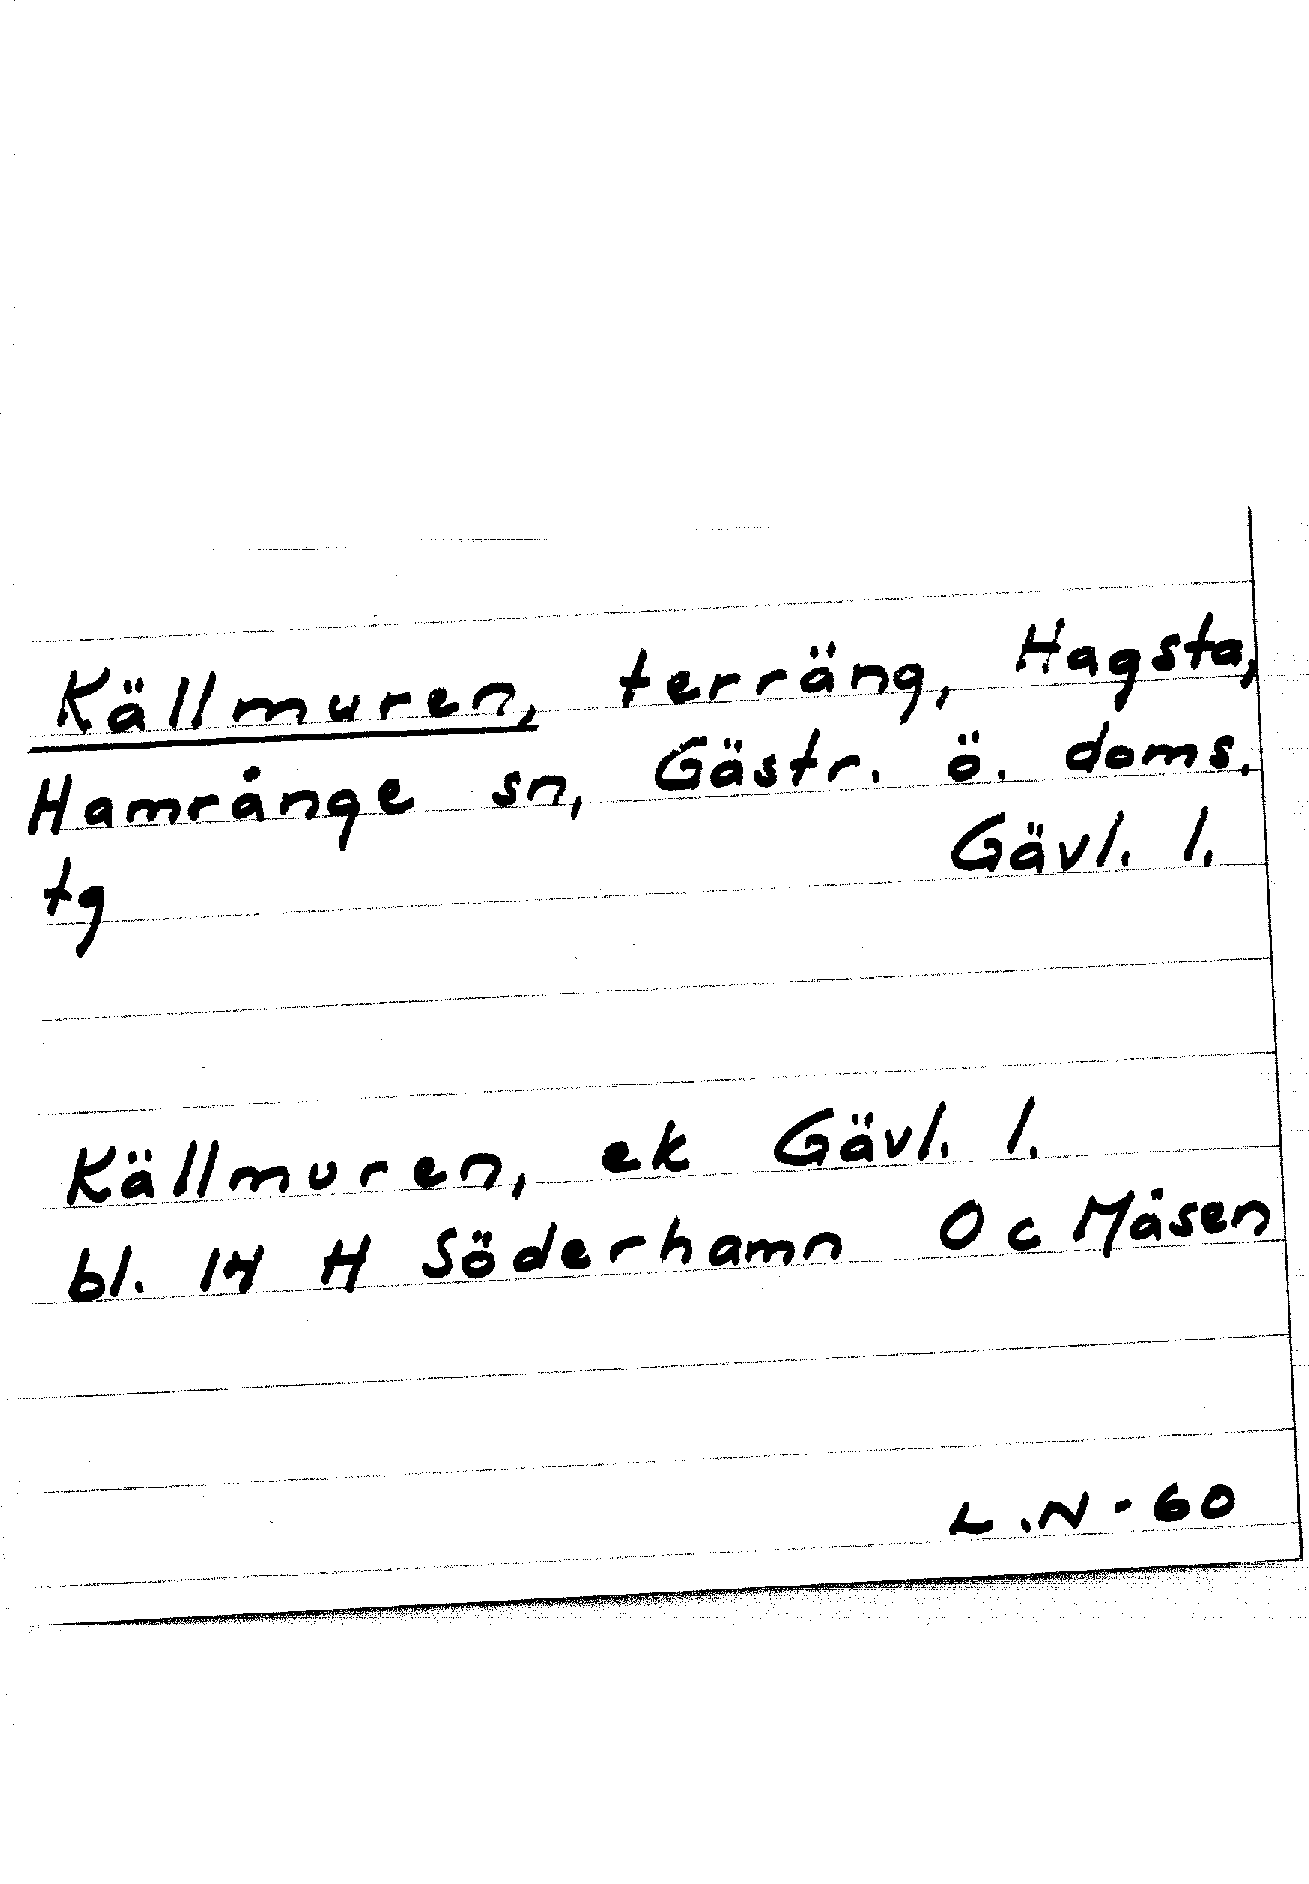 Källmuren, terräng, Hagsta,
Hamrånge sn, Gästr. ö. doms.
tg Gävl. l.
Källmuren, ek Gävl. l.
bl. 14 H Söderhamn O c Måsen
L.N-60